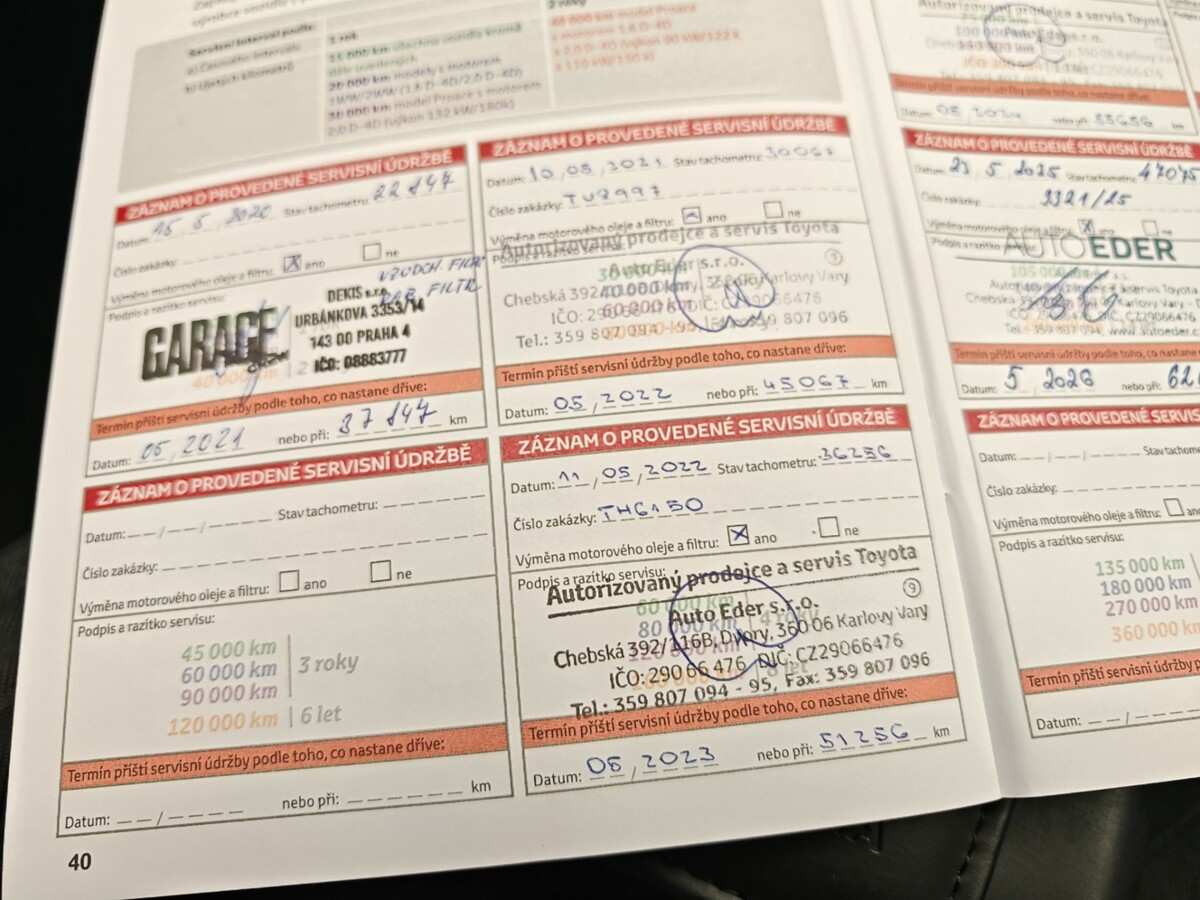 Servisní interval podle:
a) Časového intervalu
b) Ujetých kilometrů
1 rok
15 000 km všechna vozidla kromě
níže uvedených
20 000 km modely s motorem
1WW/2WW (1,6 D-4D/2,0 D-4D)
30 000 km model Proace s motorem
2,0 D-4D (výkon 132 kW/180k)
2 roky
40 000 km model Proace
s motorem 1,6 D-4D
a 2,0 D-4D (výkon 90 kW/122 k
a 110 kW/150 k)
ZÁZNAM O PROVEDENÉ SERVISNÍ ÚDRŽBĚ
Datum: 15, 5, 2020 Stav tachometru: 22 147
Číslo zakázky:
Výměna motorového oleje a filtru: X ano ne
Podpis a razítko servisu:
VZDUCH. FILTR
KAB. FILTR
GARAGE
DEKIS s.r.o.
URBÁNKOVA 3353/14
143 00 PRAHA 4
IČO: 08883777
40 000 km
Termín příští servisní údržby podle toho, co nastane dříve:
Datum: 05, 2021 nebo při: 37 147 km
ZÁZNAM O PROVEDENÉ SERVISNÍ ÚDRŽBĚ
Datum: / / Stav tachometru:
Číslo zakázky:
Výměna motorového oleje a filtru: ano ne
Podpis a razítko servisu:
45 000 km
60 000 km
90 000 km
3 roky
120 000 km 6 let
Termín příští servisní údržby podle toho, co nastane dříve:
Datum: / nebo při: km
40
ZÁZNAM O PROVEDENÉ SERVISNÍ ÚDRŽBĚ
Datum: 10, 05, 2021 Stav tachometru: 30067
Číslo zakázky: TU2997
Výměna motorového oleje a filtru: X ano ne
Podpis a razítko servisu:
Autorizovaný prodejce a servis Toyota
Auto Eder s.r.o.
Chebská 392/116B, Dvory, 360 06 Karlovy Vary
IČO: 290 66 476 DIČ: CZ29066476
Tel.: 359 807 094 - 95, Fax: 359 807 096
Termín příští servisní údržby podle toho, co nastane dříve:
Datum: 05, 2022 nebo při: 45067 km
ZÁZNAM O PROVEDENÉ SERVISNÍ ÚDRŽBĚ
Datum: 11, 05, 2022 Stav tachometru: 36256
Číslo zakázky: TH6150
Výměna motorového oleje a filtru: X ano ne
Podpis a razítko servisu:
Autorizovaný prodejce a servis Toyota
9
Auto Eder s.r.o.
Chebská 392/116B, Dvory, 360 06 Karlovy Vary
IČO: 290 66 476 DIČ: CZ29066476
Tel.: 359 807 094 - 95, Fax: 359 807 096
Termín příští servisní údržby podle toho, co nastane dříve:
Datum: 05, 2023 nebo při: 51256 km
Autorizovaný prodejce a servis Toyota
Auto Eder s.r.o.
Termín příští servisní údržby podle toho, co nastane dříve:
Datum: 05, 2024 nebo při: 55656 km
ZÁZNAM O PROVEDENÉ SERVISNÍ ÚDRŽBĚ
Datum: 23, 5, 2025 Stav tachometru: 47075
Číslo zakázky: 3321/25
Výměna motorového oleje a filtru: X
Podpis a razítko
AUTO EDER
105 000 km
Termín příští servisní údržby podle toho, co nastane
Datum: 5, 2026 nebo při: 62
ZÁZNAM O PROVEDENÉ SERVISNÍ
Datum: / / Stav tachome
Číslo zakázky:
Výměna motorového oleje a filtru: ano
Podpis a razítko servisu:
135 000 km
180 000 km
270 000 km
360 000 km
Termín příští servisní údržby podle
Datum: / nebo při: